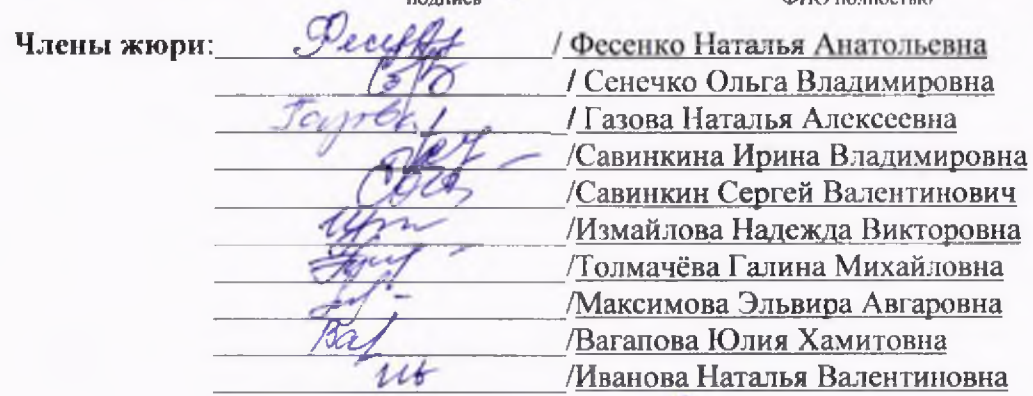 подпись ФИО полностью
Члены жюри: / Фесенко Наталья Анатольевна
/ Сенечко Ольга Владимировна
Газова / Газова Наталья Алексеевна
/Савинкина Ирина Владимировна
/Савинкин Сергей Валентинович
/Измайлова Надежда Викторовна
/Толмачёва Галина Михайловна
/Максимова Эльвира Авгаровна
Ваг /Вагапова Юлия Хамитовна
/Иванова Наталья Валентиновна